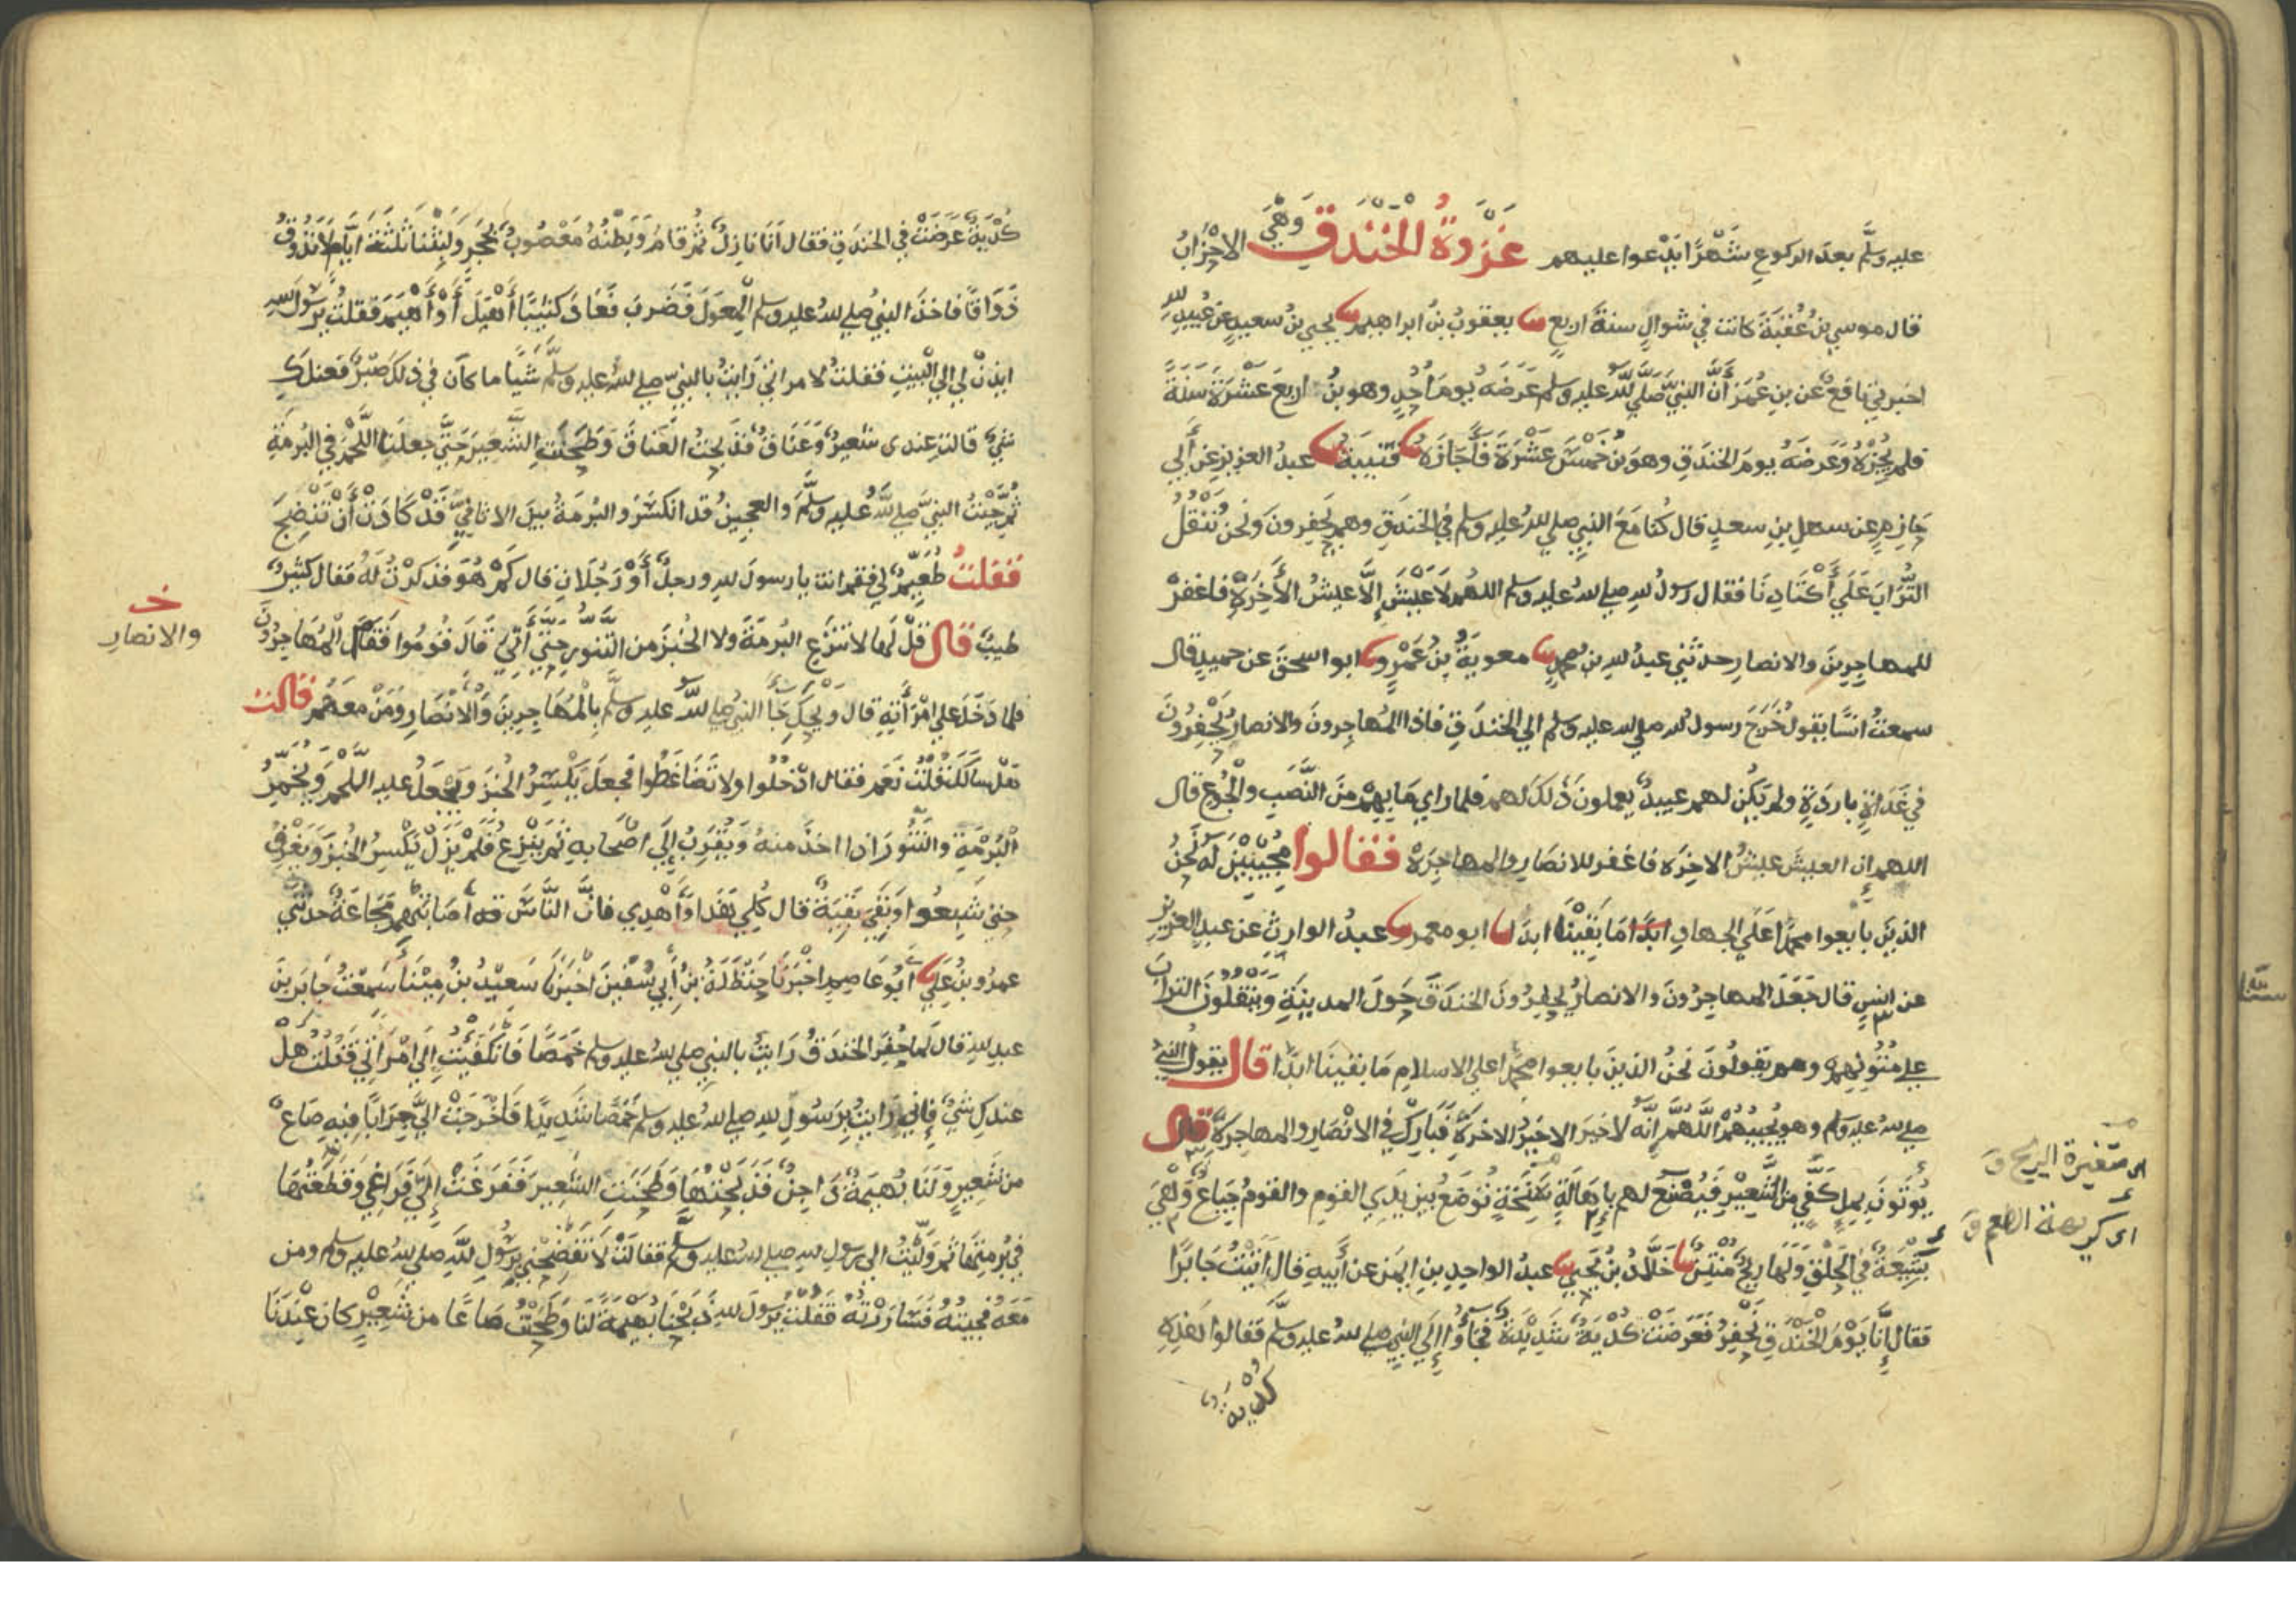 عليه وسلَّم بعد الركوع شَهْرًا يَدْعوا عليهم غَزْوَةُ الْخَنْدَقِ وَهْيَ الاحْزَابُ
قال موسي بنُ عُقْبَةَ كانت في شوالٍ سنةَ اربعٍ يعقوبُ بنُ ابراهيم يحيي بنُ سعيدٍ عن عُبيدِ لله
اخبرني نافعٌ عن بنِ عُمَرَ أَنَّ النبيَّ صَلَّي للَّهُ عليه وسلم عَرَضَهُ يومَ أُحُدٍ وهو بنُ اربعَ عَشْرَةَ سَنَةً
فلم يُجِزْهُ وَعَرضَهُ يومَ الخندقِ وهوَ بنُ خَمْسَ عَشْرَةَ فَأَجَازَهُ قتيبةُ عبدُ العزيزِ عن أَبي
حَازمٍ عن سهلِ بنِ سعدٍ قال كُنَّا مَعَ النبيِ صلي للهُ عليه وسلم في الخندقِ وهم يَحْفِرونَ ونَحنُ نَنْقُلُ
التُّرَابَ عَلَي أَكْتَادِنَا فقال رسولُ للهِ صلي للهُ عليه وسلم اللهم لَا عَيْشَ إِلَّا عيشُ الأَخِرَةِ فاغفرْ
للمهاجِرِينَ والانصارِ حدثني عبدُ للهِ بن محمدٍ معويةُ بنُ عَمْرٍو ابو اسحقَ عن حميدٍ قال
سمعتُ انسًا يقولُ خَرَجَ رسولُ للهِ صلي لله عليه وسلم الي الخندقِ فاذا المُهاجِرونَ والانصارُ يَحْفِرُونَ
في غَدَاةٍ باردَةٍ ولم يَكُنْ لهم عبيدٌ يعملونَ ذَلكَ لهم فلما راي مَا بِهِمْ مِنَ النَّصَبِ والْجُوعِ قال
اللهم إِن العيشَ عيشُ الاخِرَه فاغفر للانصَارِ والمهاجِرَهْ فقالوا مُجِيْبِيْنَ لَه نَحْنُ
الذينَ بايعوا محمدًا عَلَي الجهادِ ابَدًا مَا بَقِيْنَا ابدَا ابو معمرٍ عبدُ الوارثِ عن عبدِ العزيزِ
عن انسٍ قال جَعَلَ المهاجِرُونَ والانصارُ يَحْفِرُونَ الخندقَ حَولَ المدينةِ وَيَنْقُلونَ الترابَ
علي مُتُونِهِم وهم يَقولُونَ نَحنُ الذينَ بايعوا محمدًا علي الاسلامِ مَا بقينَا ابدًا قال يقول النبيُ
صلي للهُ عليه وسلم وهو يُجيبُهُمْ اللَّهُمَّ إِنَّهُ لَا خيرَ الا خيرُ الاخرَهْ فَبَارِكْ في الانْصَارِ والمهاجِرَهْ قال
يُوتَونَ بِمِلِ كَفَّيَّ مِنَ الشَّعِيْرِ فَيُصْنَعُ لهم بِإِهَالَةٍ سَنِخَةٍ تُوضَعُ بينَ يدَي القومِ والقومُ جِيَاعٌ وَهْيَ
بَشِعَةٌ في الحَلْقِ وَلَهَا ريحٌ مُنْتِنٌ خَلَّادُ بنُ يَحْيي عبدُ الواحدِ بنِ ايمنَ عن أَبيهِ قال أَتيْتُ جَابرًا
فقال إِنَّا يَوْمَ الخَنْدَقِ نَحْفِرُ فَعَرَضَتْ كُدْيَةٌ شَدِيْدَةٌ فَجَاؤُا إِلي النبيِ صلي للهُ عليه وسلَّم فقالوا هَذِهِ
كُدْيَةٌ
اى متغيرة الريح ق
اى كريهة الطعم ق
كُدْيَةٌ عَرَضَتْ في الخندقِ فقال أَنَا نازِلٌ ثم قامَ وَبَطْنُهُ مَعْصُوبٌ بِحَجَرٍ وَلَبِثْنَا ثَلَثَةَ ايَّامٍ لَا نَذُوقُ
ذَوَاقًا فاخذَ النبيُ صلي للهُ عليه وسلم الْمِعْوَلَ فَضَربَ فَعَادَ كَثِيبًا أَهْيَلَ أَوْ أَهْيَمَ فقلتُ يرَسُولَ للهِ
ايذنْ لي إلي الْبيتِ فقلتُ لامراتي رَايتُ بالنبيِّ صلي للهُ عليه وسلَّم شَيْأً ما كانَ في ذلكَ صَبْرٌ فَعندَكِ
شيٌ قالت عندى شعيرٌ وَعَنَاقٌ فذَبحتُ العَنَاقَ وَطَحَنَتِ الشَّعيرَ حَتَّي جعلنا اللَّحْمَ في البُرمَةِ
ثُمَّ جِيْتُ النبيَّ صلي للَّهُ عليه وسلَّمَ والعجينُ قد انكسَرَ والبُرمَةُ بينَ الاثافيِّ قَدْ كَادَتْ أَنْ تَنْضِجَ
فَقلتُ طُعَيِّمٌ لي فقم انت يا رسولَ للهِ ورجلٌ أَوْ رَجُلَانِ قال كَمْ هُوَ فذكرْتُ لَهُ فقال كثيرٌ
طيبٌ قال قُلْ لَهَا لا تَنْزِعِ البُرمَةَ ولا الخُبْزَ مِنَ التَّنُّورِ حَتَّي أَتِيَ قَالَ قُومُوا فَقَامَ الْمُهَاجِرُونَ
خـ والانصارِ
فلما دَخَلَ علي امْرَأَتِهِ قال وَيْحَكِ جَأَ النبيُ صلي للَّهُ عليه وسلَّم بِالْمُهَاجِرِينَ وَالْانْصَارِ وَمَنْ مَعَهُم قالت
هَلْ سَأَلَكَ قُلْتُ نَعَم فقال ادْخُلُوا ولا تَضَاغَطُوا فجعلَ يَكْسِرُ الخُبْزَ وَيَجْعَلُ عليه اللَّحْمَ وَيُخَمِّرُ
الْبُرْمَةَ والتَّنُّورَ اذا اخذَ منهُ وَيُقَرِّبُ إِلَي اصْحَابِهِ ثم يَنْزِعُ فَلَمْ يَزَلْ يَكْسِرُ الخبزَ وَيَغْرِفُ
حتي شَبِعُوا وَبَقِيَ بَقِيَّةٌ قال كُلِي هَذَا وَأَهْدِي فانَّ النَّاسَ قد أَصَابَتْهُم مَجَاعَةٌ حدثني
عمرُو بنُ عَلِي أَبُو عَاصِمٍ اخْبَرَنَا حَنْظَلَةُ بنُ أَبِي سُفْيَنَ اخْبَرَنَا سَعِيْدُ بنُ مِيْنَأَ سَمِعْتُ جَابرَ بنَ
عبدِ للهِ قال لَمَّا حُفِرَ الخندقُ رَايتُ بالنبيِ صلي للهُ عليه وسلم خَمَصًا فَانْكَفَيْتُ إِلَي امْرَاتِي فَقُلْتُ هَلْ
عندكِ شيٌ فإِني رَايتُ بِرَسُولِ للهِ صلي للهُ عليه وسلم خَمَصًا شَدِيدًا فَاخْرَجَتْ إِلَيَّ جِرَابًا فيهِ صَاعٌ
من شَعِيرٍ وَلَنَا بُهَيمَةٌ دَاجِنٌ فَذَبَحْتُهَا وَطَحَنَتِ الشعِيرَ فَفَرَغَتْ إِلَيَّ فَرَاغِي وَقَطَعْتُهَا
في بُرمَتِهَا ثمَّ وَلَّيْتُ الي رسولِ للهِ صلي للهُ عليه وسلَّم فقالَتْ لَا تَفْضَحْنِي بِرَسُولِ للَّهِ صلي للهُ عليه وسلم ومن
مَعَهُ فجيتُهُ فَسَارَرْتُهُ فَقُلْتُ يرسُولَ للهِ ذَبَحْنَا بُهَيْمَةً لَنَا وَطَحَنْتُ صَاعًا مِن شَعِيْرٍ كانَ عِنْدَنَا